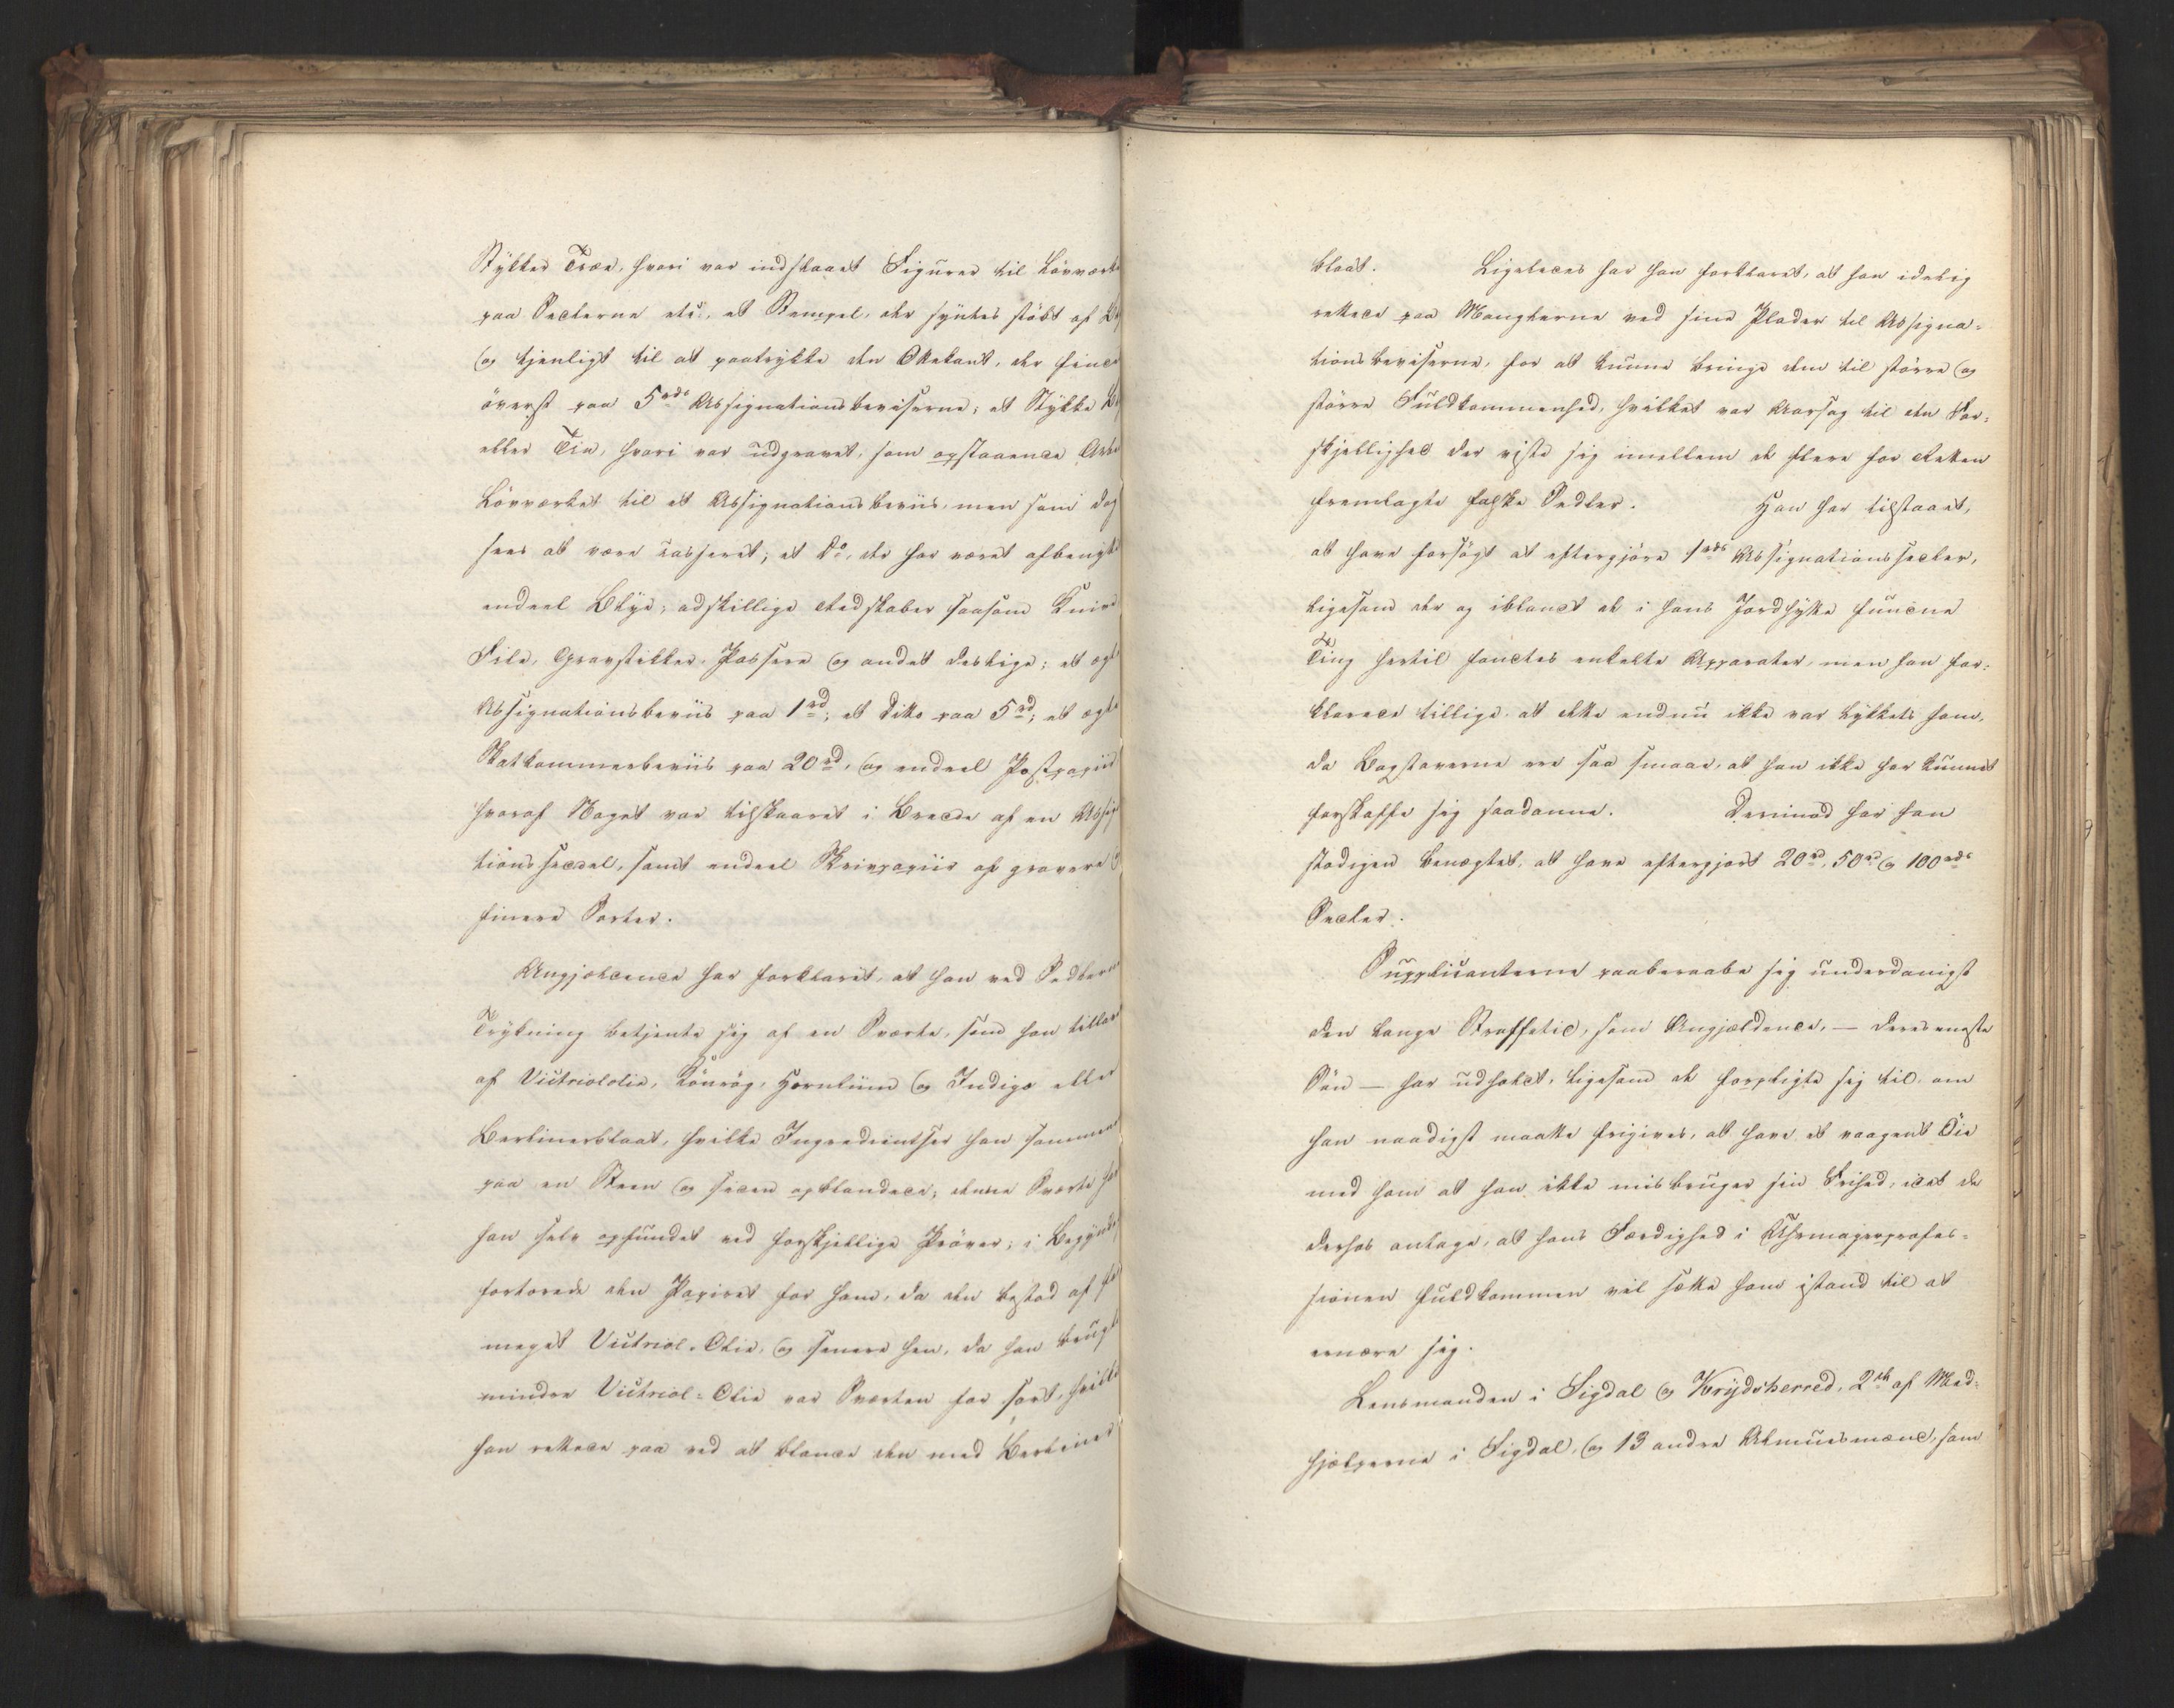 Stykker Træe, hvori var indskaaret Figurer til Lövværk
paa Sedlerne etc., et Stempel, der syntes stöbt af
og tjenligt til at paatrykke den Ottekant, der findes
överst paa 5rds Assignationsbeviserne; et Stykke
eller Tin, hvori var udgravet, som opstaaende
Lövværket til et Assignationsbeviis, men som dog
sees at være casseret; et Do, der har været afbenyttet
endeel Blye; adskillige Redskaber saasom Knive
File, Gravstikker, Passere og andet deslige; et ægte
Assignationsbeviis paa 1rd; et Ditto paa 5rd; et ægte
Skatkammerbeviis paa 20rd, og endeel Postpapiir
hvoraf Noget var tilskaaret i Bredde af en Assigna
tionsseddel, samt endeel Skrivpapiir af grovere og
finere Sorter.
Angjeldende har forklaret, at han ved Sedlernes
Trykning betjente sig af en Sværte, som han tillavede
af Victriololie, Könrög, Hornliim og Indigo eller
Berlinerblaat, hvilke Ingredientser han sammenrev
paa en Steen og siden opblandede; denne Sværte har
han selv opfundet ved forskjellige Pröver; i Begyndelsen
fortærede den Papiret for ham, da den bestod af for
meget Victriol-Olie, og senere hen, da han brugte
mindre Victriol-Olie var Sværten for sort, hvilket
han rettede paa ved at blande den med Berliner
blaat. Ligeledes har han forklaret, at han idelig
rettede paa Manglerne ved sine Plader til Assigna-
tionsbeviserne, for at kunne bringe dem til större og
större Fuldkommenhed, hvilket var Aarsag til den For-
skjellighed der viste sig imellem de flere for Retten
fremlagte falske Sedler. Han har tilstaaet,
at have forsögt at eftergjöre 1rds Assignationssedler,
ligesom der og iblandt de i hans Jordhytte fundne
Ting hertil fandtes enkelte Apparater, men han for-
klarede tillige at dette endnu ikke var lykkets ham,
da Bogstaverne ere saa smaae, at han ikke har kunnet
forskaffe sig saadanne. Derimod har han
stadigen benægtet, at have eftergjort 20rd, 50rd og 100rds
Sedler.
Supplicanterne paaberaabe sig underdanigst
den lange Straffetid, som Angjældende, — deres eneste
Sön — har udholdt, ligesom de forpligte sig til, om
han naadigst maatte frigives, at have et vaagent Öie
med ham at han ikke misbruger sin Frihed, idet de
derhos antage, at hans Færdighed i Uhrmagerprofes-
sionen fuldkommen vil sætte ham istand til at
ernære sig.
Lensmanden i Sigdal og Krydsherred, 2de af Med-
hjælperne i Sigdal, og 13 andre Almuesmænd, som